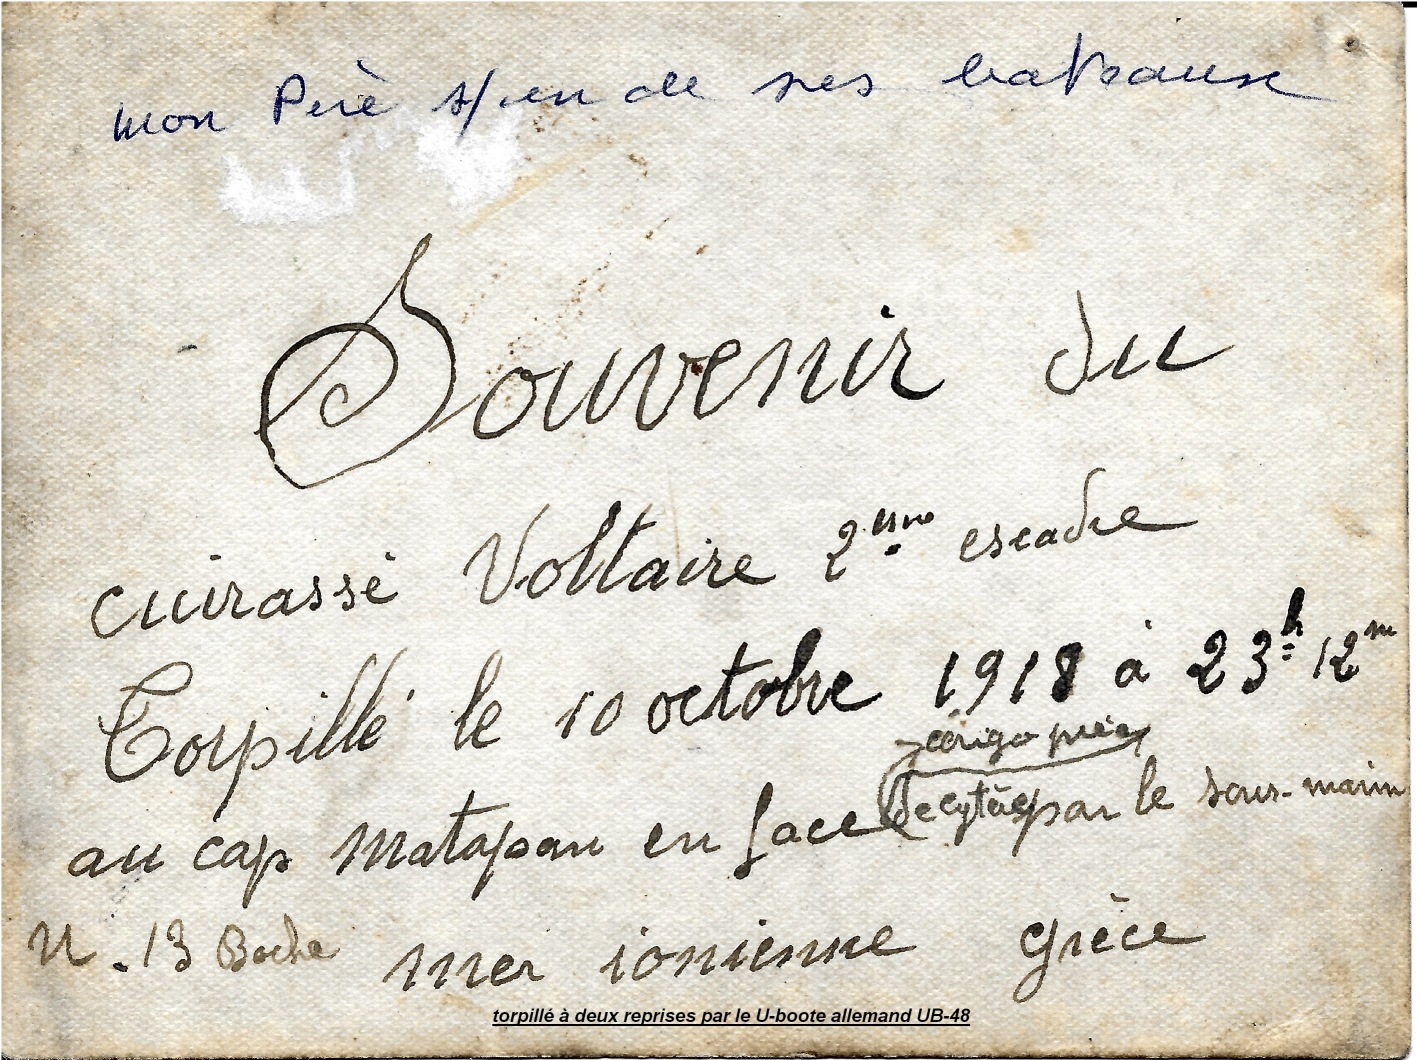 mon Père s/un de ses bateaux
Souvenir du
cuirassé Voltaire 2ème escadre
Torpillé le 10 octobre 1918 à 23h 12m
cérigo près
au cap Matapan en face de par le sous-marin
U-13 Boche mer ionienne Grèce
torpillé à deux reprises par le U-boote allemand UB-48